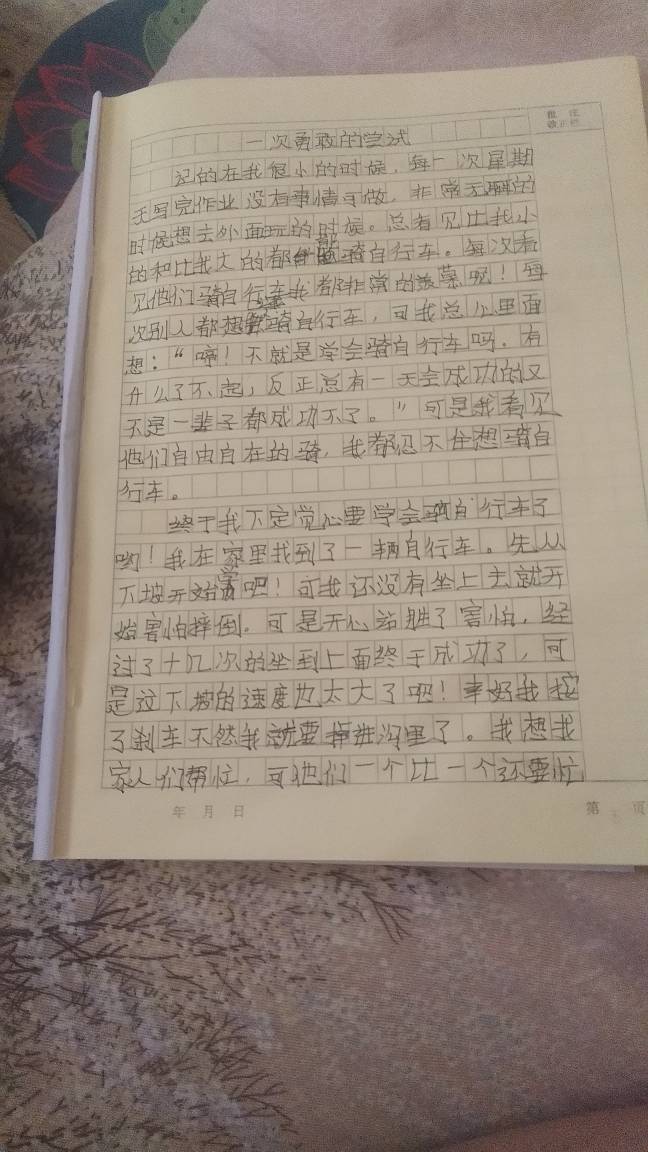 批 注
敬正栏
一次勇敢的尝试
记的在我很小的时候，每一次星期
天写完作业没有事情可做，非常无聊的
时候想去外面玩的时候。总看见比我小
的和比我大的都能骑自行车。每次看
见他们骑自行车我都非常的羡慕呢！每
次别人都想骑自行车，可我总心里面
想：“哼！不就是学会骑自行车吗，有
什么了不起，反正总有一天会成功的又
不是一辈子都成功不了。”可是我看见
他们自由自在的骑，我都忍不住想骑自
行车。
终于我下定觉心要学会骑自行车了
哟！我在家里找到了一辆自行车。先从
下坡开始学吧！可我还没有坐上去就开
始害怕摔倒。可是开心站胜了害怕，经
过了十几次的坐到上面终于成功了，可
是这下坡的速度也太大了吧！幸好我按
了刹车不然我就要掉进沟里了。我想我
家人们帮忙，可他们一个比一个还要忙
年 月 日
第 页